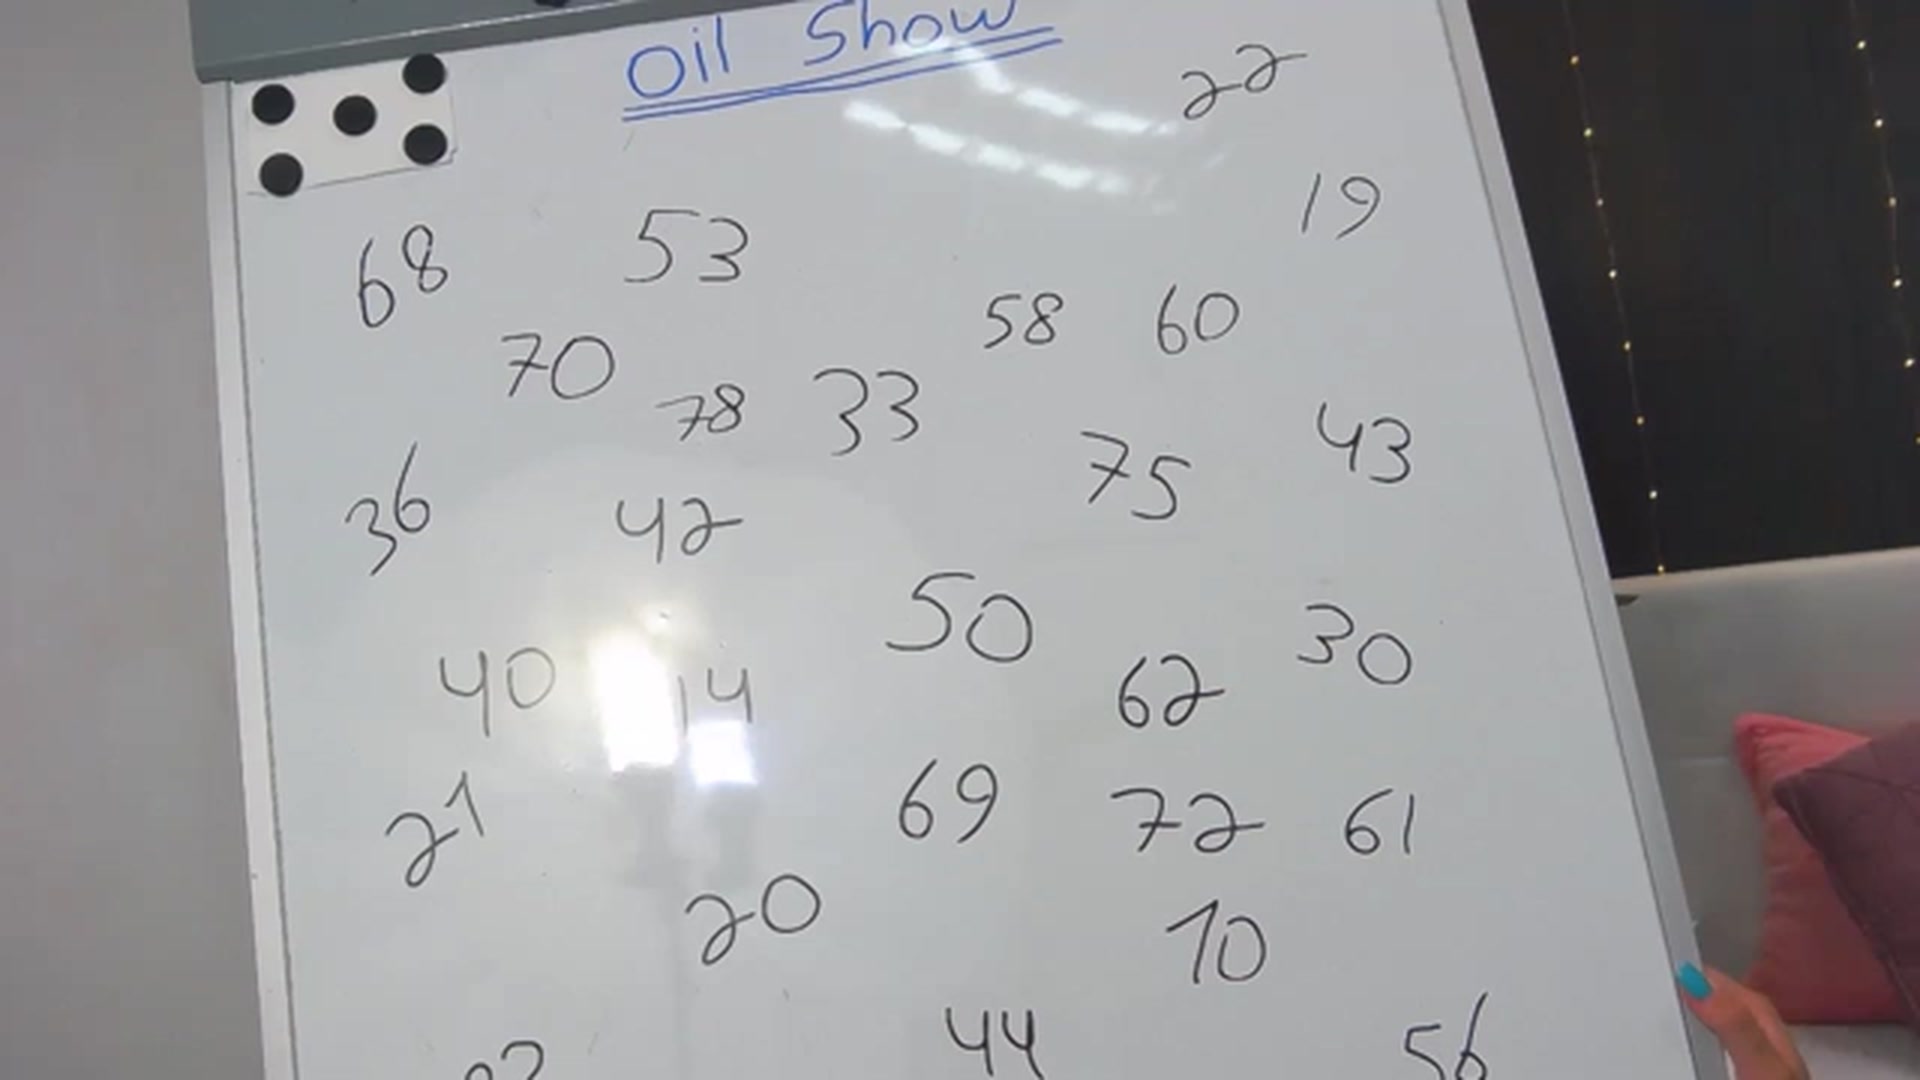 Oil Show
22
19
68 53
58 60
70 78 33
75 43
36 42
50
40 14 62 30
21 69 72 61
20 10
44 56